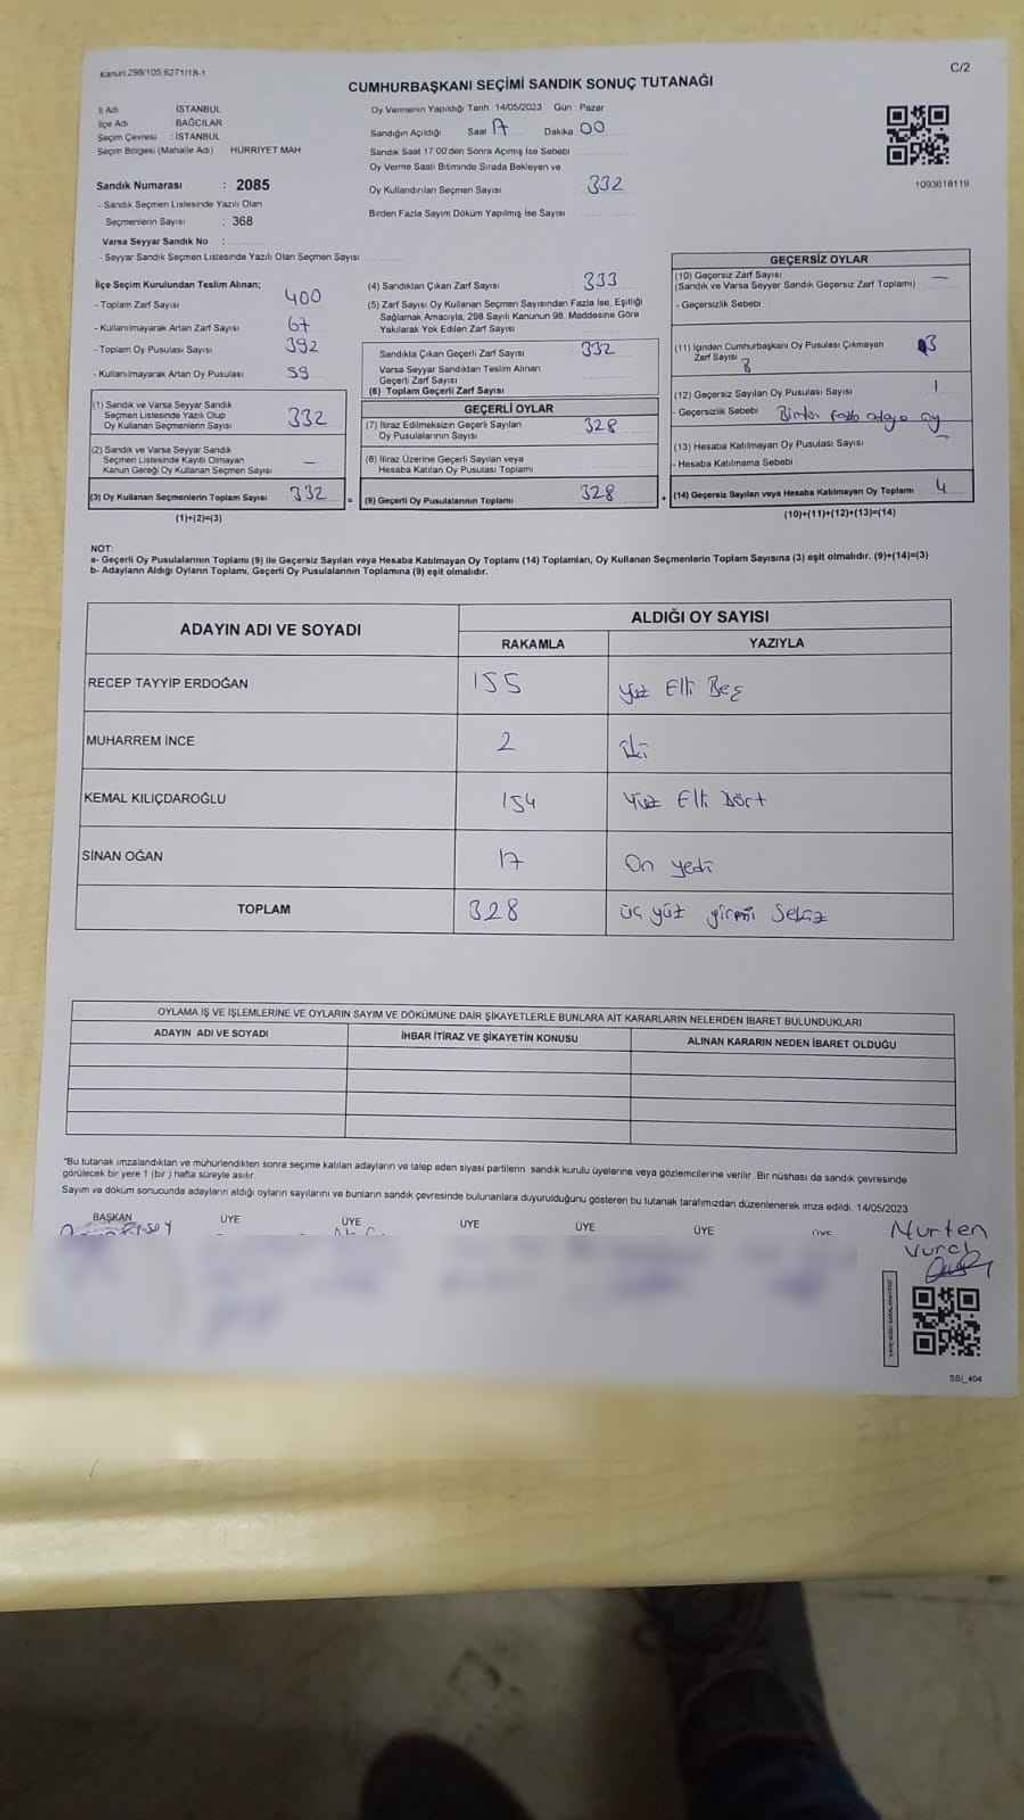 Kanun:298/105,6271/18-1
C/2
CUMHURBAŞKANI SEÇİMİ SANDIK SONUÇ TUTANAĞI
İl Adı İSTANBUL
İlçe Adı BAĞCILAR
Seçim Çevresi : İSTANBUL
Seçim Bölgesi (Mahalle Adı) HÜRRİYET MAH
Sandık Numarası : 2085
- Sandık Seçmen Listesinde Yazılı Olan
Seçmenlerin Sayısı : 368
Varsa Seyyar Sandık No :
- Seyyar Sandık Seçmen Listesinde Yazılı Olan Seçmen Sayısı
Oy Vermenin Yapıldığı Tarih: 14/05/2023 Gün : Pazar
Sandığın Açıldığı Saat 17 Dakika 00
Sandık Saat 17:00'den Sonra Açılmış İse Sebebi
Oy Verme Saati Bitiminde Sırada Bekleyen ve
Oy Kullandırılan Seçmen Sayısı 332
Birden Fazla Sayım Döküm Yapılmış İse Sayısı
1093618119
İlçe Seçim Kurulundan Teslim Alınan;
- Toplam Zarf Sayısı 400
- Kullanılmayarak Artan Zarf Sayısı 67
- Toplam Oy Pusulası Sayısı 392
- Kullanılmayarak Artan Oy Pusulası 59
(1) Sandık ve Varsa Seyyar Sandık
Seçmen Listesinde Yazılı Olup
Oy Kullanan Seçmenlerin Sayısı 332
(2) Sandık ve Varsa Seyyar Sandık
Seçmen Listesinde Kayıtlı Olmayan
Kanun Gereği Oy Kullanan Seçmen Sayısı —
(3) Oy Kullanan Seçmenlerin Toplam Sayısı 332 =
(1)+(2)=(3)
(4) Sandıktan Çıkan Zarf Sayısı 333
(5) Zarf Sayısı Oy Kullanan Seçmen Sayısından Fazla İse, Eşitliği
Sağlamak Amacıyla, 298 Sayılı Kanunun 98. Maddesine Göre
Yakılarak Yok Edilen Zarf Sayısı
Sandıkta Çıkan Geçerli Zarf Sayısı 332
Varsa Seyyar Sandıktan Teslim Alınan
Geçerli Zarf Sayısı
(6) Toplam Geçerli Zarf Sayısı
GEÇERLİ OYLAR
(7) İtiraz Edilmeksizin Geçerli Sayılan
Oy Pusulalarının Sayısı 328
(8) İtiraz Üzerine Geçerli Sayılan veya
Hesaba Katılan Oy Pusulası Toplamı
(9) Geçerli Oy Pusulalarının Toplamı 328 +
GEÇERSİZ OYLAR
(10) Geçersiz Zarf Sayısı —
(Sandık ve Varsa Seyyar Sandık Geçersiz Zarf Toplamı)
- Geçersizlik Sebebi
(11) İçinden Cumhurbaşkanı Oy Pusulası Çıkmayan 3
Zarf Sayısı 3
(12) Geçersiz Sayılan Oy Pusulası Sayısı 1
- Geçersizlik Sebebi Birden fazla adaya oy
(13) Hesaba Katılmayan Oy Pusulası Sayısı —
- Hesaba Katılmama Sebebi
(14) Geçersiz Sayılan veya Hesaba Katılmayan Oy Toplamı 4
(10)+(11)+(12)+(13)=(14)
NOT:
a- Geçerli Oy Pusulalarının Toplamı (9) ile Geçersiz Sayılan veya Hesaba Katılmayan Oy Toplamı (14) Toplamları, Oy Kullanan Seçmenlerin Toplam Sayısına (3) eşit olmalıdır. (9)+(14)=(3)
b- Adayların Aldığı Oyların Toplamı, Geçerli Oy Pusulalarının Toplamına (9) eşit olmalıdır.
ADAYIN ADI VE SOYADI ALDIĞI OY SAYISI
RAKAMLA YAZIYLA
RECEP TAYYİP ERDOĞAN 155 Yüz Elli Beş
MUHARREM İNCE 2 iki
KEMAL KILIÇDAROĞLU 154 Yüz Elli Dört
SİNAN OĞAN 17 On yedi
TOPLAM 328 üç yüz yirmi Sekiz
OYLAMA İŞ VE İŞLEMLERİNE VE OYLARIN SAYIM VE DÖKÜMÜNE DAİR ŞİKAYETLERLE BUNLARA AİT KARARLARIN NELERDEN İBARET BULUNDUKLARI
ADAYIN ADI VE SOYADI İHBAR İTİRAZ VE ŞİKAYETİN KONUSU ALINAN KARARIN NEDEN İBARET OLDUĞU
"Bu tutanak imzalandıktan ve mühürlendikten sonra seçime katılan adayların ve talep eden siyasi partilerin sandık kurulu üyelerine veya gözlemcilerine verilir. Bir nüshası da sandık çevresinde
görülecek bir yere 1 (bir ) hafta süreyle asılır.
Sayım ve döküm sonucunda adayların aldığı oyların sayılarını ve bunların sandık çevresinde bulunanlara duyurulduğunu gösteren bu tutanak tarafımızdan düzenlenerek imza edildi. 14/05/2023
BAŞKAN ÜYE ÜYE ÜYE ÜYE ÜYE ÜYE
Nurten
SBİ_404